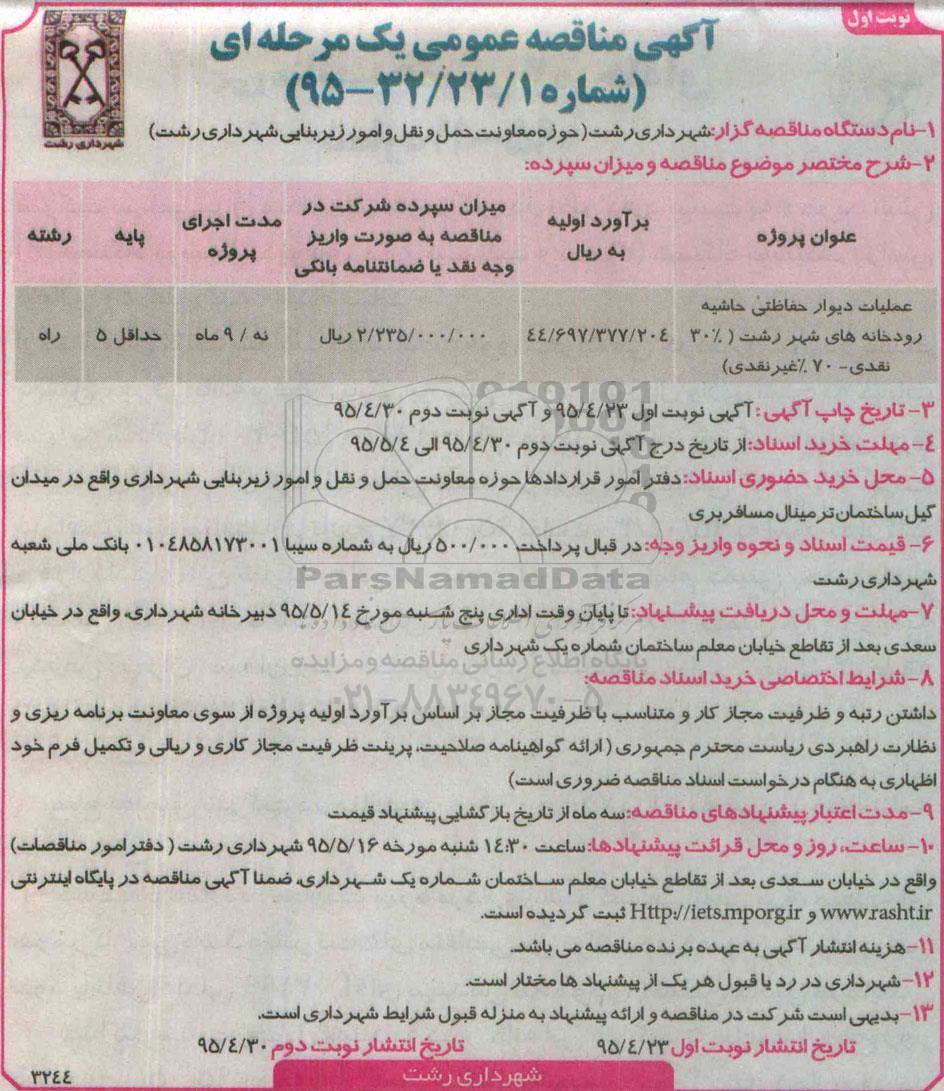 نوبت اول
آگهی مناقصه عمومی یک مرحله ای
(شماره ۹۵-۳۲/۲۳/۱)
شهرداری رشت
۱-نام دستگاه مناقصه گزار:شهرداری رشت(حوزه معاونت حمل و نقل و امور زیربنایی شهرداری رشت)
۲-شرح مختصر موضوع مناقصه و میزان سپرده:
عنوان پروژه
برآورد اولیه
به ریال
میزان سپرده شرکت در
مناقصه به صورت واریز
وجه نقد یا ضمانتنامه بانکی
مدت اجرای
پروژه
پایه
رشته
عملیات دیوار حفاظتی حاشیه
رودخانه های شهر رشت ( ۳۰٪
نقدی- ۷۰ ٪غیرنقدی)
۴۴/۶۹۷/۳۷۷/۲۰۴
۲/۲۳۵/۰۰۰/۰۰۰ ریال
نه / ۹ ماه
حداقل ۵
راه
۳- تاریخ چاپ آگهی : آگهی نوبت اول ۹۵/۴/۲۳ و آگهی نوبت دوم ۹۵/۴/۳۰
۴- مهلت خرید اسناد:از تاریخ درج آگهی نوبت دوم ۹۵/۴/۳۰ الی ۹۵/۵/۴
۵- محل خرید حضوری اسناد:دفتر امور قراردادها حوزه معاونت حمل و نقل و امور زیربنایی شهرداری واقع در میدان
گیل ساختمان ترمینال مسافربری
۶- قیمت اسناد و نحوه واریز وجه: در قبال پرداخت ۵۰۰/۰۰۰ ریال به شماره سیبا ۰۱۰۴۸۵۸۱۷۳۰۰۱ بانک ملی شعبه
شهرداری رشت
ParsNamadData
۷-مهلت و محل دریافت پیشنهاد:تا پایان وقت اداری پنج شنبه مورخ ۹۵/۵/۱۴ دبیرخانه شهرداری، واقع در خیابان
سعدی بعد از تقاطع خیابان معلم ساختمان شماره یک شهرداری
پایگاه اطلاع رسانی مناقصه و مزایده
۸-شرایط اختصاصی خرید اسناد مناقصه:
۰۲۱-۸۸۳۴۹۶۷۰-۵
داشتن رتبه و ظرفیت مجاز کار و متناسب با ظرفیت مجاز بر اساس برآورد اولیه پروژه از سوی معاونت برنامه ریزی و
نظارت راهبردی ریاست محترم جمهوری (ارائه گواهینامه صلاحیت، پرینت ظرفیت مجاز کاری و ریالی و تکمیل فرم خود
اظهاری به هنگام درخواست اسناد مناقصه ضروری است)
۹-مدت اعتبار پیشنهادهای مناقصه:سه ماه از تاریخ بازگشایی پیشنهاد قیمت
۱۰-ساعت، روز و محل قرائت پیشنهادها:ساعت ۱۴:۳۰ شنبه مورخه ۹۵/۵/۱۶ شهرداری رشت (دفترامور مناقصات)
واقع در خیابان سعدی بعد از تقاطع خیابان معلم ساختمان شماره یک شهرداری، ضمنا آگهی مناقصه در پایگاه اینترنتی
www.rasht.ir و Http://iets.mporg.ir ثبت گردیده است.
۱۱-هزینه انتشار آگهی به عهده برنده مناقصه می باشد.
۱۲-شهرداری در رد یا قبول هر یک از پیشنهاد ها مختار است.
۱۳-بدیهی است شرکت در مناقصه و ارائه پیشنهاد به منزله قبول شرایط شهرداری است.
تاریخ انتشار نوبت اول ۹۵/۴/۲۳ تاریخ انتشار نوبت دوم ۹۵/۴/۳۰
شهرداری رشت
۳۲۴۴